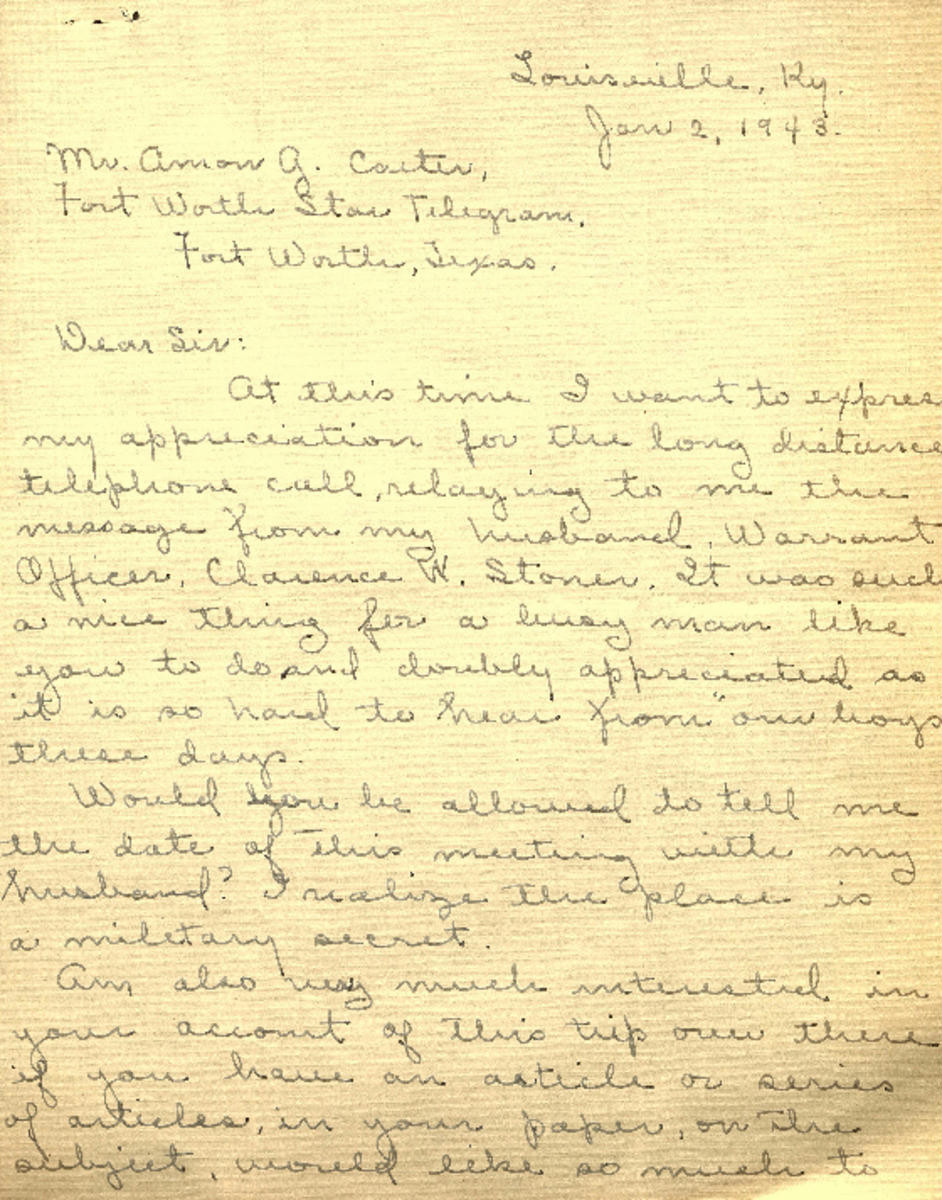 Louisville, Ky.
Jan 2, 1943.
Mr. Amon G. Carter,
Fort Worth Star Telegram,
Fort Worth, Texas.
Dear Sir:
At this time I want to expres
my appreciation for the long distance
telephone call, relaying to me the
message from my husband, Warrant
Officer, Clarence W. Stoner. It was such
a nice thing for a busy man like
you to do and doubly appreciated as
it is so hard to hear from "our boys
these days.
Would you be allowed to tell me
the date of this meeting with my
husband? I realize the place is
a miletary secret.
Am also very much interested in
your account of this trip over there
if you have an article or series
of articles, in your paper, on the
subject, would like so much to